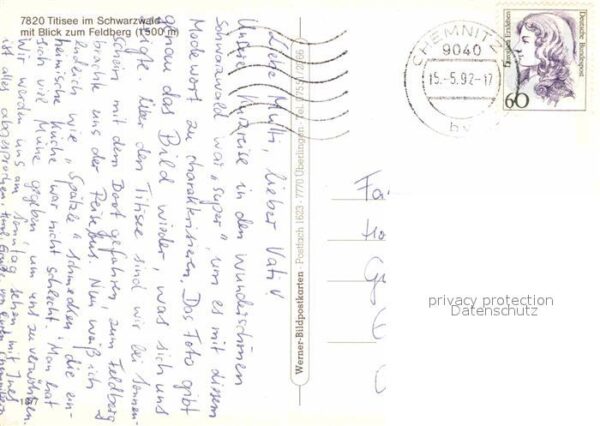 7820 Titisee im Schwarzwald
mit Blick zum Feldberg (1500 m)
Liebe Mutti, lieber Vati,
Unsere Kurzreise in den wunderschönen
Schwarzwald war „super", um es mit diesem
Modewort zu charakterisieren. Das Foto gibt
genau das Bild wieder, was sich uns
zeigte über den Titisee sind wir bei Sonnen-
schein mit dem Boot gefahren, zum Feldberg
brachte uns der Reisebus. Nun weiß ich
endlich wie „Spätzle" schmecken, die ein-
heimische Küche war nicht schlecht. Man hat
sich viel Mühe gegeben, um uns zu verwöhnen.
Wir werden uns am Sonntag sehen, mit Ines
ist alles abgesprochen.
Werner-Bildpostkarten · Postfach 1623 · 7770 Überlingen
CHEMNITZ
9040
15.-5.92-17
by
Deutsche Bundespost
60
privacy protection
Datenschutz